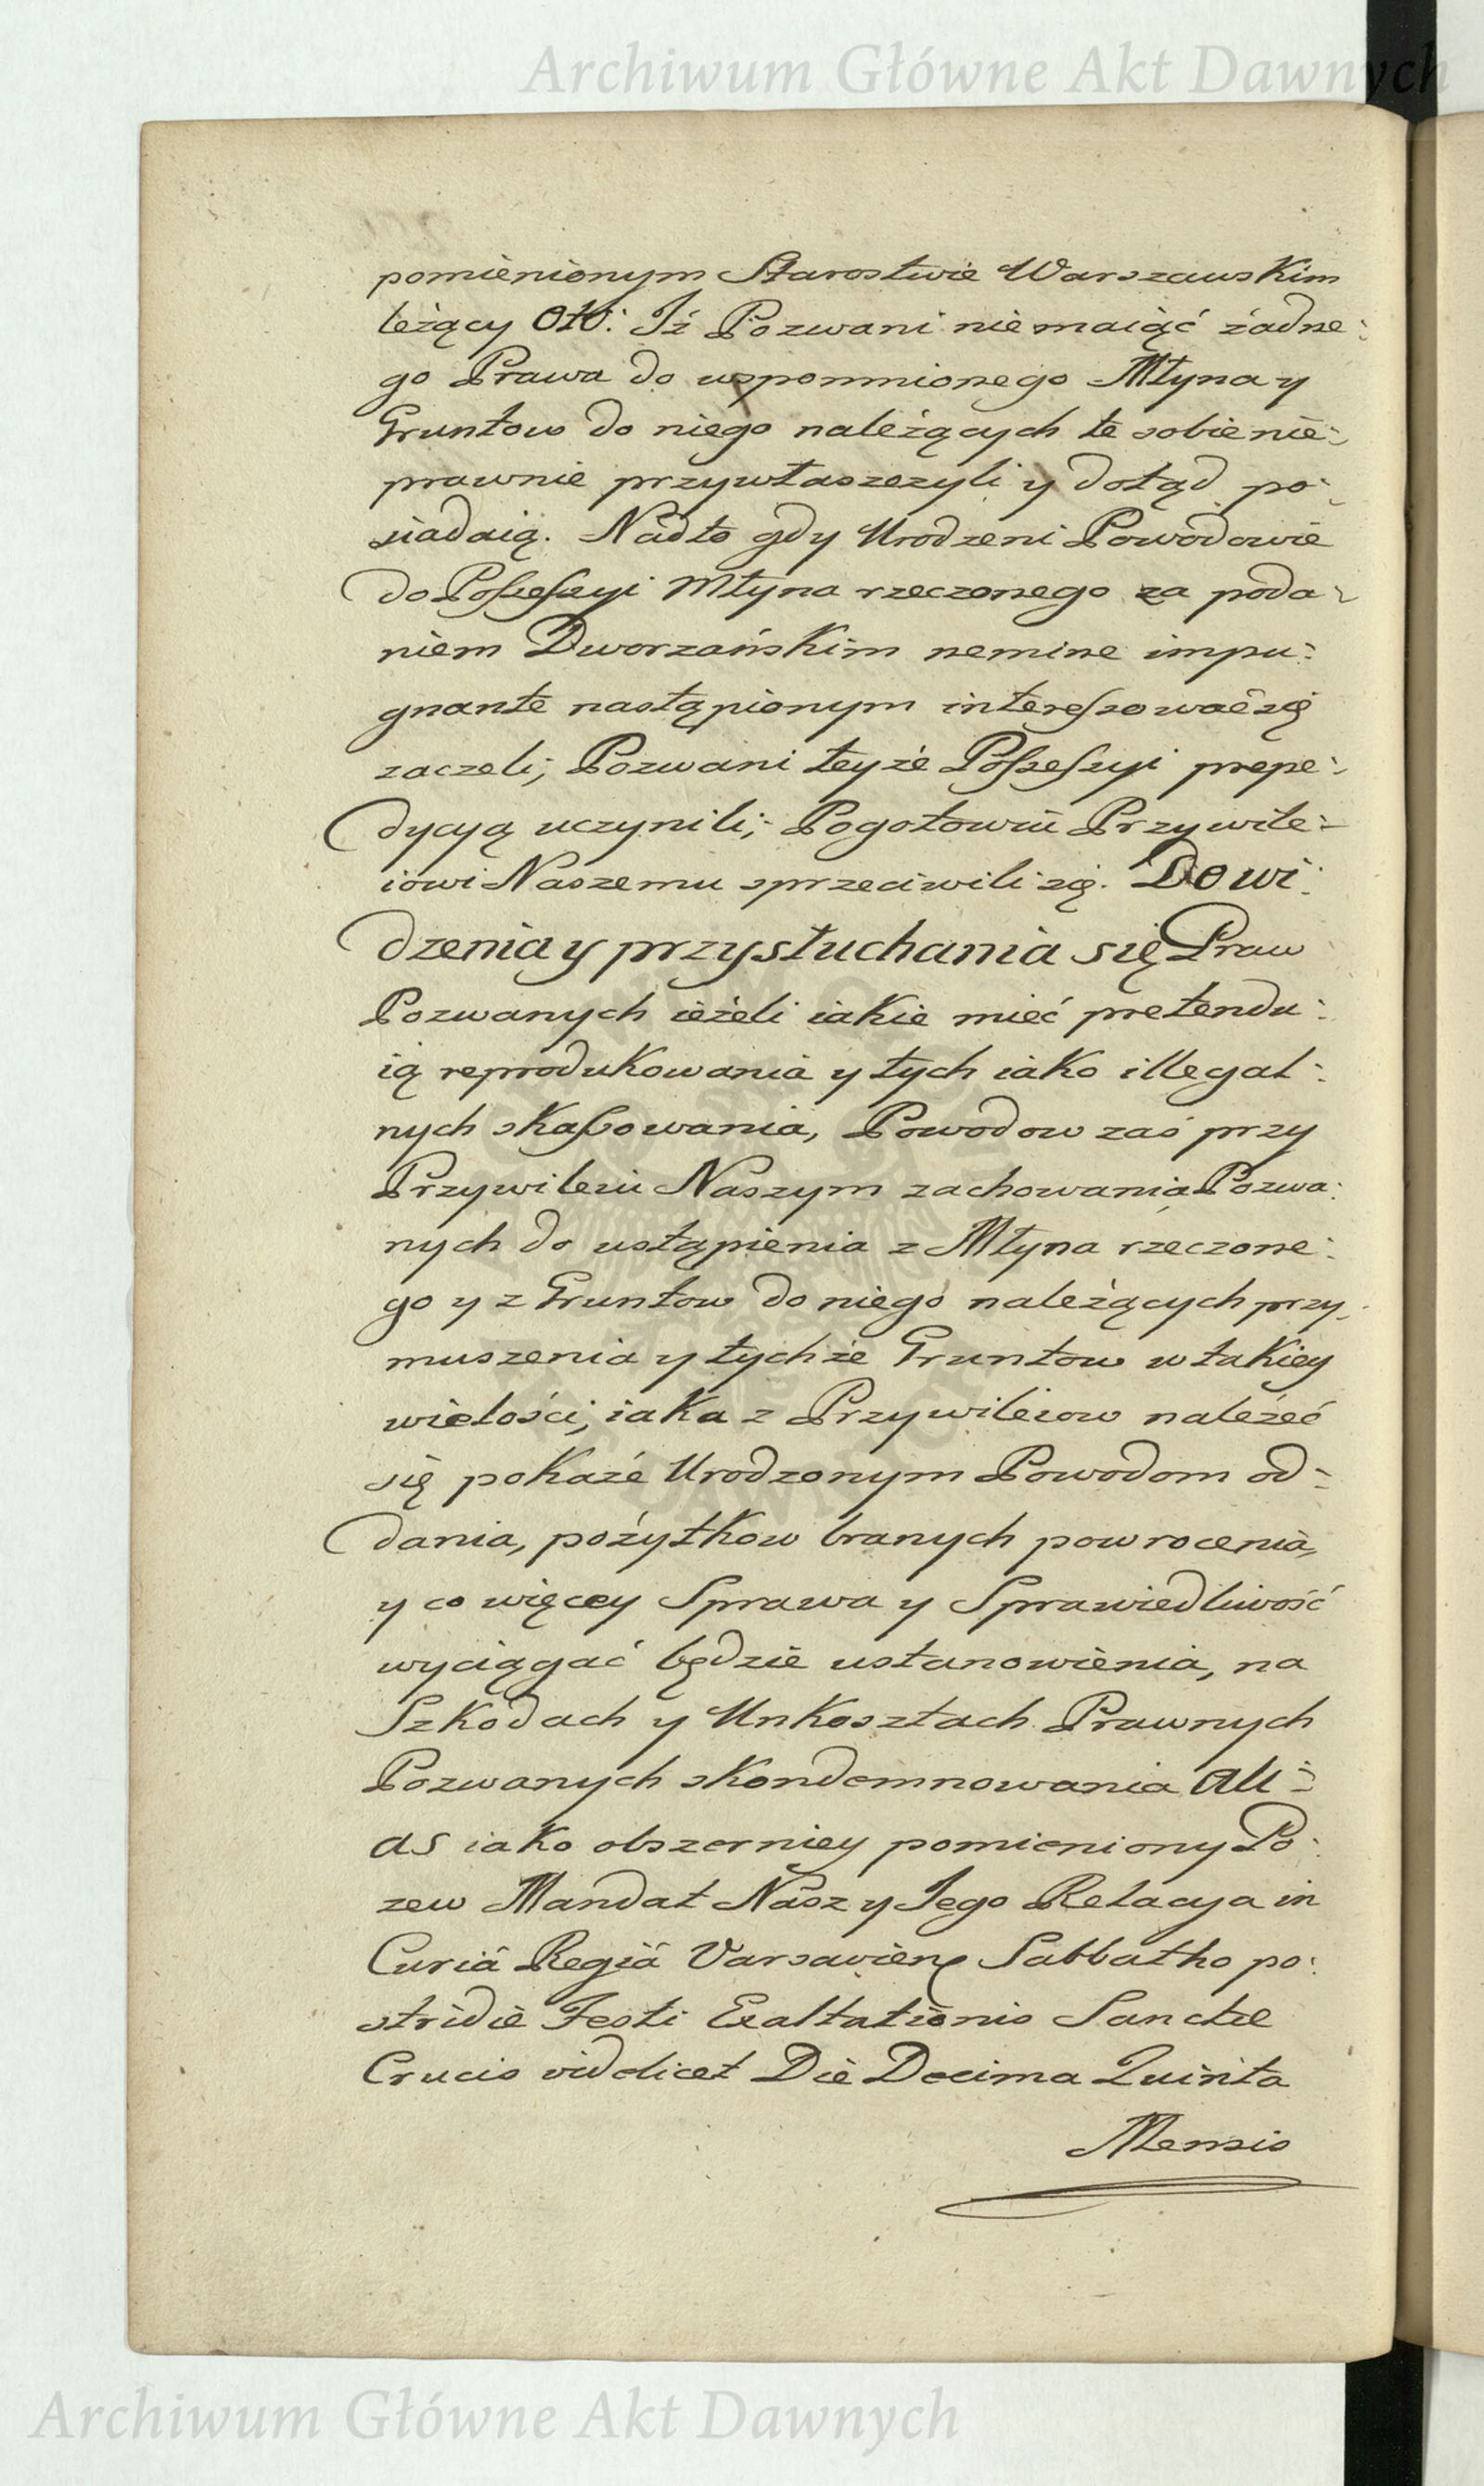 Archiwum Główne Akt Dawnych
pomienionym Starostwie Warszawskim
leżący Oto: Iż Pozwani nie maiąć żadne:
go Prawa do wspomnionego Młyna y
Gruntow do niego należących te sobie nie:
prawnie przywłaszczyli y dotąd po:
siadaią. Nadto gdy Urodzeni Powodowie
do Possessyi Młyna rzeczonego za poda:
niem Dworzańskim nemine impu:
gnante nastąpionym interessować się
zaczeli; Pozwani teyże Possessyi prepe:
dycyą uczynili; Pogotowiu Przywile:
iowi Naszemu sprzeciwili się. Do wi:
dzenia y przysłuchania się Praw
Pozwanych ieżeli iakie mieć pretendu:
ią reprodukowania y tych iako illegal:
nych skassowania, Powodow zaś przy
Przywileiu Naszym zachowania, Pozwa:
nych do ustąpienia z Młyna rzeczone:
go y z Gruntow do niego należących przy:
muszenia y tychże Gruntow w takiey
wielości, iaka z Przywileiow należeć
się pokaże Urodzonym Powodom od:
dania, pożytkow branych powrocenia,
y co więcey Sprawa y Sprawiedliwość
wyciągać będzie ustanowienia, na
Szkodach y Unkosztach Prawnych
Pozwanych skondemnowania Ali:
as iako obszerniey pomieniony Po:
zew Mandat Nasz y Jego Relacya in
Curiâ Regiâ Varsavien Sabbatho po:
stridie Festi Exaltationis Sanctæ
Crucis videlicet Die Decima Quinta
Mensis
Archiwum Główne Akt Dawnych